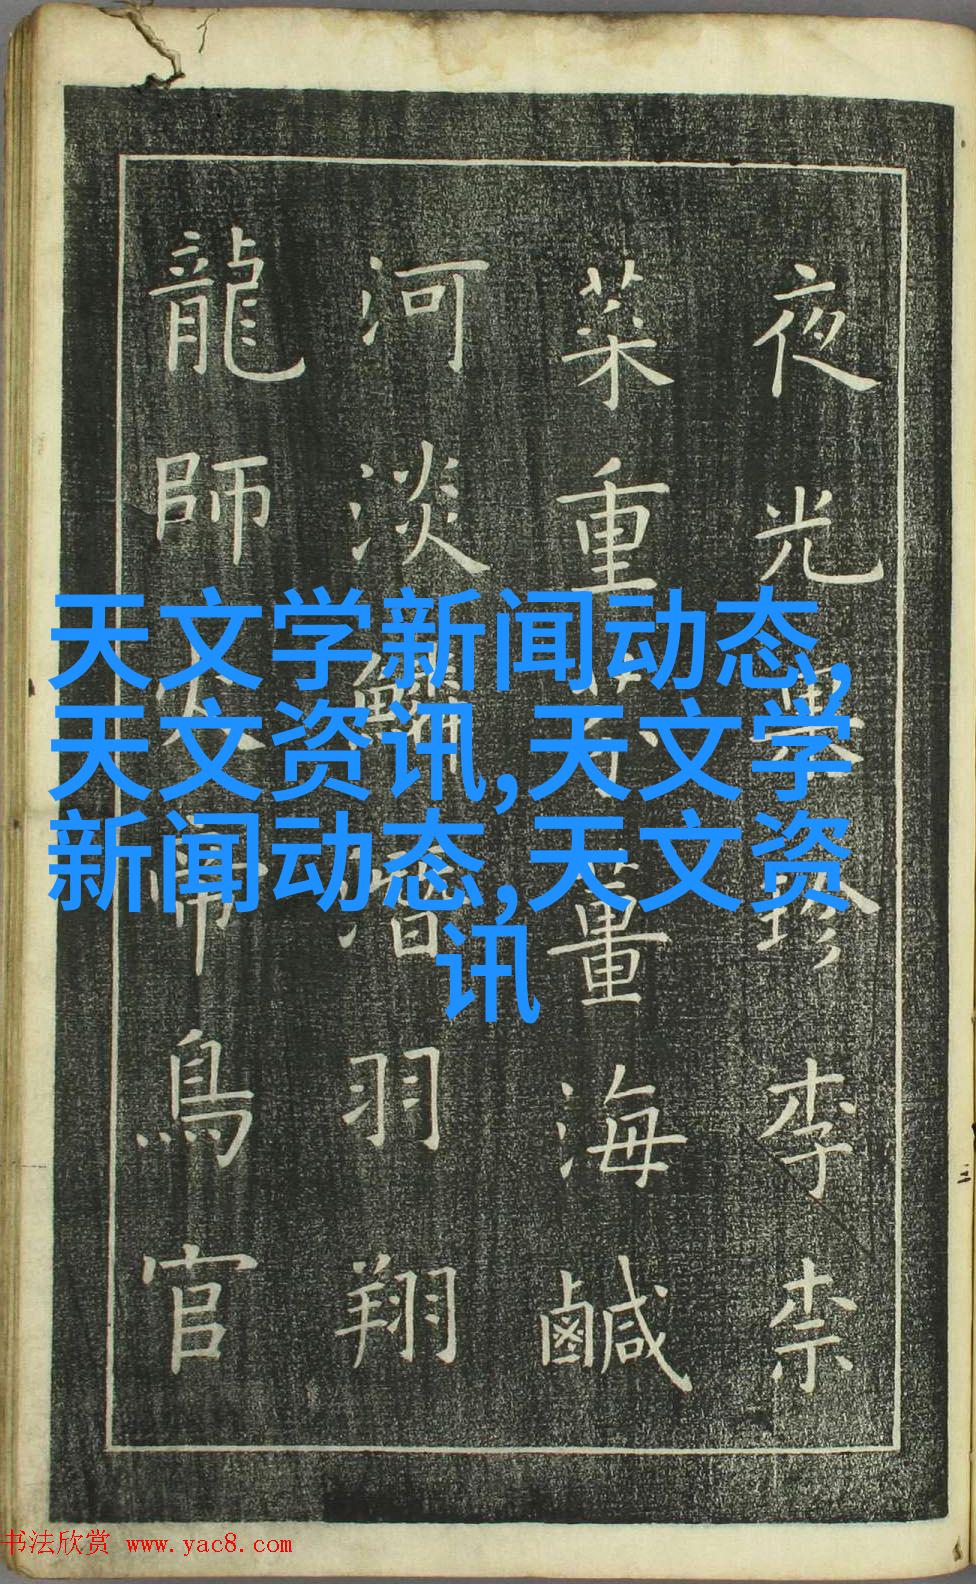 夜光果珍李柰
菜重芥薑海鹹
河淡鱗潛羽翔
龍師火帝鳥官
天文学新闻动态,
天文资讯,天文学
新闻动态,天文资
讯
书法欣赏 www.yac8.com